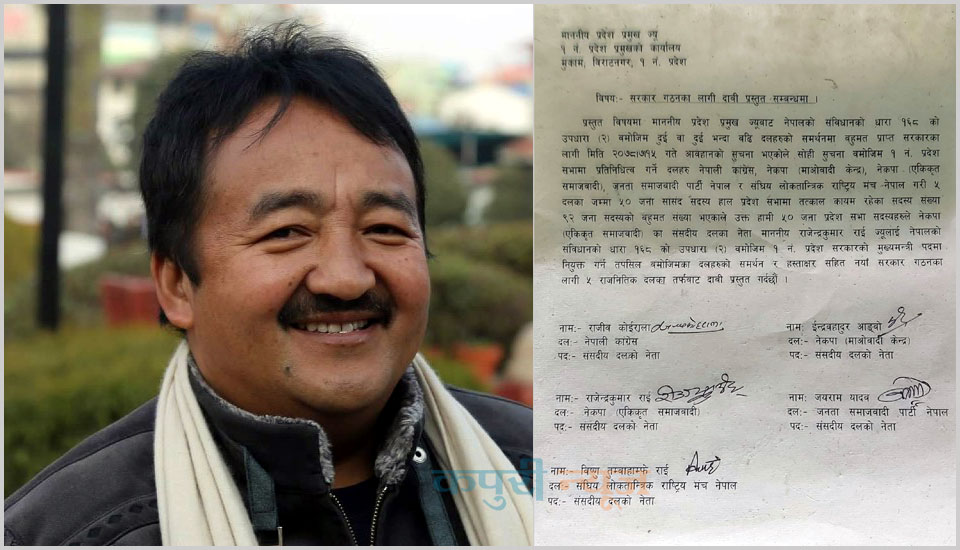 माननीय प्रदेश प्रमुख ज्यू
१ नं. प्रदेश प्रमुखको कार्यालय
मुकाम, विराटनगर, १ नं. प्रदेश
विषयः- सरकार गठनका लागी दावी प्रस्तुत सम्बन्धमा ।
प्रस्तुत विषयमा माननीय प्रदेश प्रमुख ज्यूबाट नेपालको संविधानको धारा १६८ को
उपधारा (२) बमोजिम दुई वा दुई भन्दा बढि दलहरुको समर्थनमा बहुमत प्राप्त सरकारका
लागी मिति २०७८।७।१५ गते आवहानको सुचना भएकोले सोही सुचना बमोजिम १ नं. प्रदेश
सभामा प्रतिनिधित्व गर्ने दलहरु नेपाली कांग्रेस, नेकपा (माओवादी केन्द्र), नेकपा (एकिकृत
समाजबादी), जनता समाजबादी पार्टी नेपाल र संघिय लोकतान्त्रिक राष्ट्रिय मंच नेपाल गरी ५
दलका जम्मा ५० जना सासद सदस्य हाल प्रदेश सभामा तत्काल कायम रहेका सदस्य संख्या
९२ जना सदस्यको बहुमत संख्या भएकाले उक्त हामी ५० जना प्रदेश सभा सदस्यहरुले नेकपा
(एकिकृत समाजबादी) का संसदीय दलका नेता माननीय राजेन्द्रकुमार राई ज्यूलाई नेपालको
संविधानको धारा १६८ को उपधारा (२) बमोजिम १ नं. प्रदेश सरकारको मुख्यमन्त्री पदमा
नियुक्त गर्न तपसिल बमोजिमका दलहरुको समर्थन र हस्ताक्षर सहित नयाँ सरकार गठनका
लागी ५ राजनितिक दलका तर्फबाट दावी प्रस्तुत गर्दछौं ।
नामः- राजीव कोईराला
दलः- नेपाली कांग्रेस
पदः- संसदीय दलको नेता
नामः- ईन्द्रबहादुर आङ्बो
दलः- नेकपा (माओवादी केन्द्र)
पदः- संसदीय दलको नेता
नामः- राजेन्द्रकुमार राई
दलः- नेकपा (एकिकृत समाजबादी)
पदः- संसदीय दलको नेता
नामः- जयराम यादव
दलः- जनता समाजबादी पार्टी नेपाल
पदः- संसदीय दलको नेता
नामः- विष्ण तुम्बाहाम्फे राई
दलः- संघिय लोकतान्त्रिक राष्ट्रिय मंच नेपाल
पदः- संसदीय दलको नेता
कपुरी न्यूज